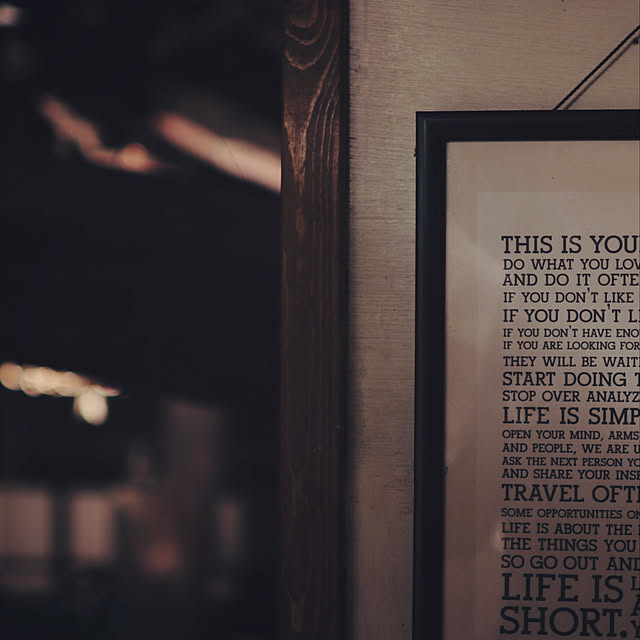 THIS IS YOU
DO WHAT YOU LOV
AND DO IT OFTE
IF YOU DON'T LIKE
IF YOU DON'T LI
IF YOU DON'T HAVE ENO
IF YOU ARE LOOKING FOR
THEY WILL BE WAIT
START DOING T
STOP OVER ANALYZ
LIFE IS SIMP
OPEN YOUR MIND, ARMS
AND PEOPLE, WE ARE U
ASK THE NEXT PERSON YO
AND SHARE YOUR INS
TRAVEL OFT
SOME OPPORTUNITIES ON
LIFE IS ABOUT THE
THE THINGS YOU
SO GO OUT AND
LIFE IS
SHORT.